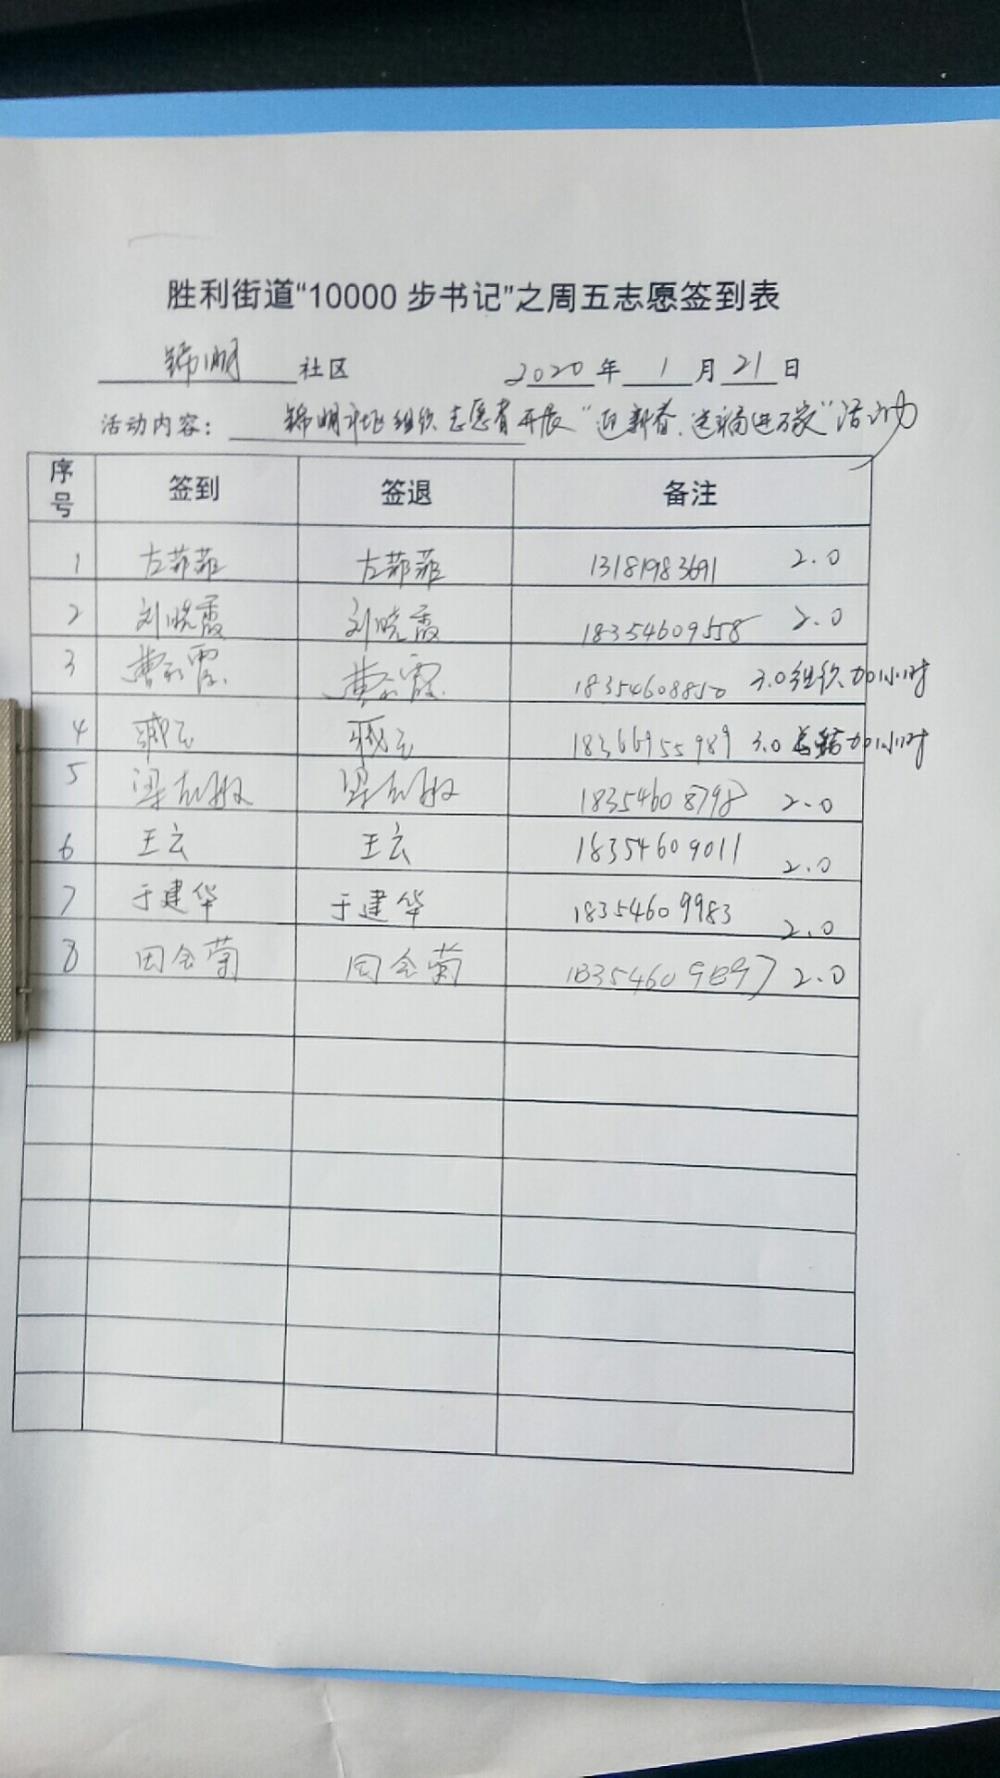 胜利街道“10000 步书记”之周五志愿签到表
锦明 社区 2020 年 1 月 21 日
活动内容： 锦明社区组织志愿者开展“迎新春、送福进万家”活动
序号 签到 签退 备注
1 左菲菲 左菲菲 13181983691 2.0
2 刘晓霞 刘晓霞 18354609558 2.0
3 3.0 组织加1小时
4 臧云 臧云 18366955989 3.0 总结加1小时
5 梁志敏 梁志敏 18354608798 2.0
6 王云 王云 18354609011 2.0
7 于建华 于建华 18354609983 2.0
8 田会菊 田会菊 18354609897 2.0